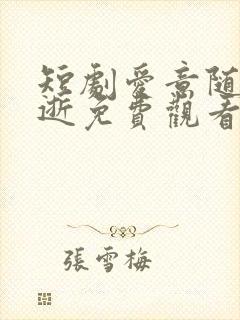 短劇愛意随
逝免費觀看
張雪梅